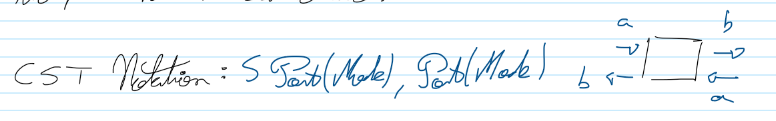 CST Notation: S Port(Mode), Port(Mode)
a b
b a